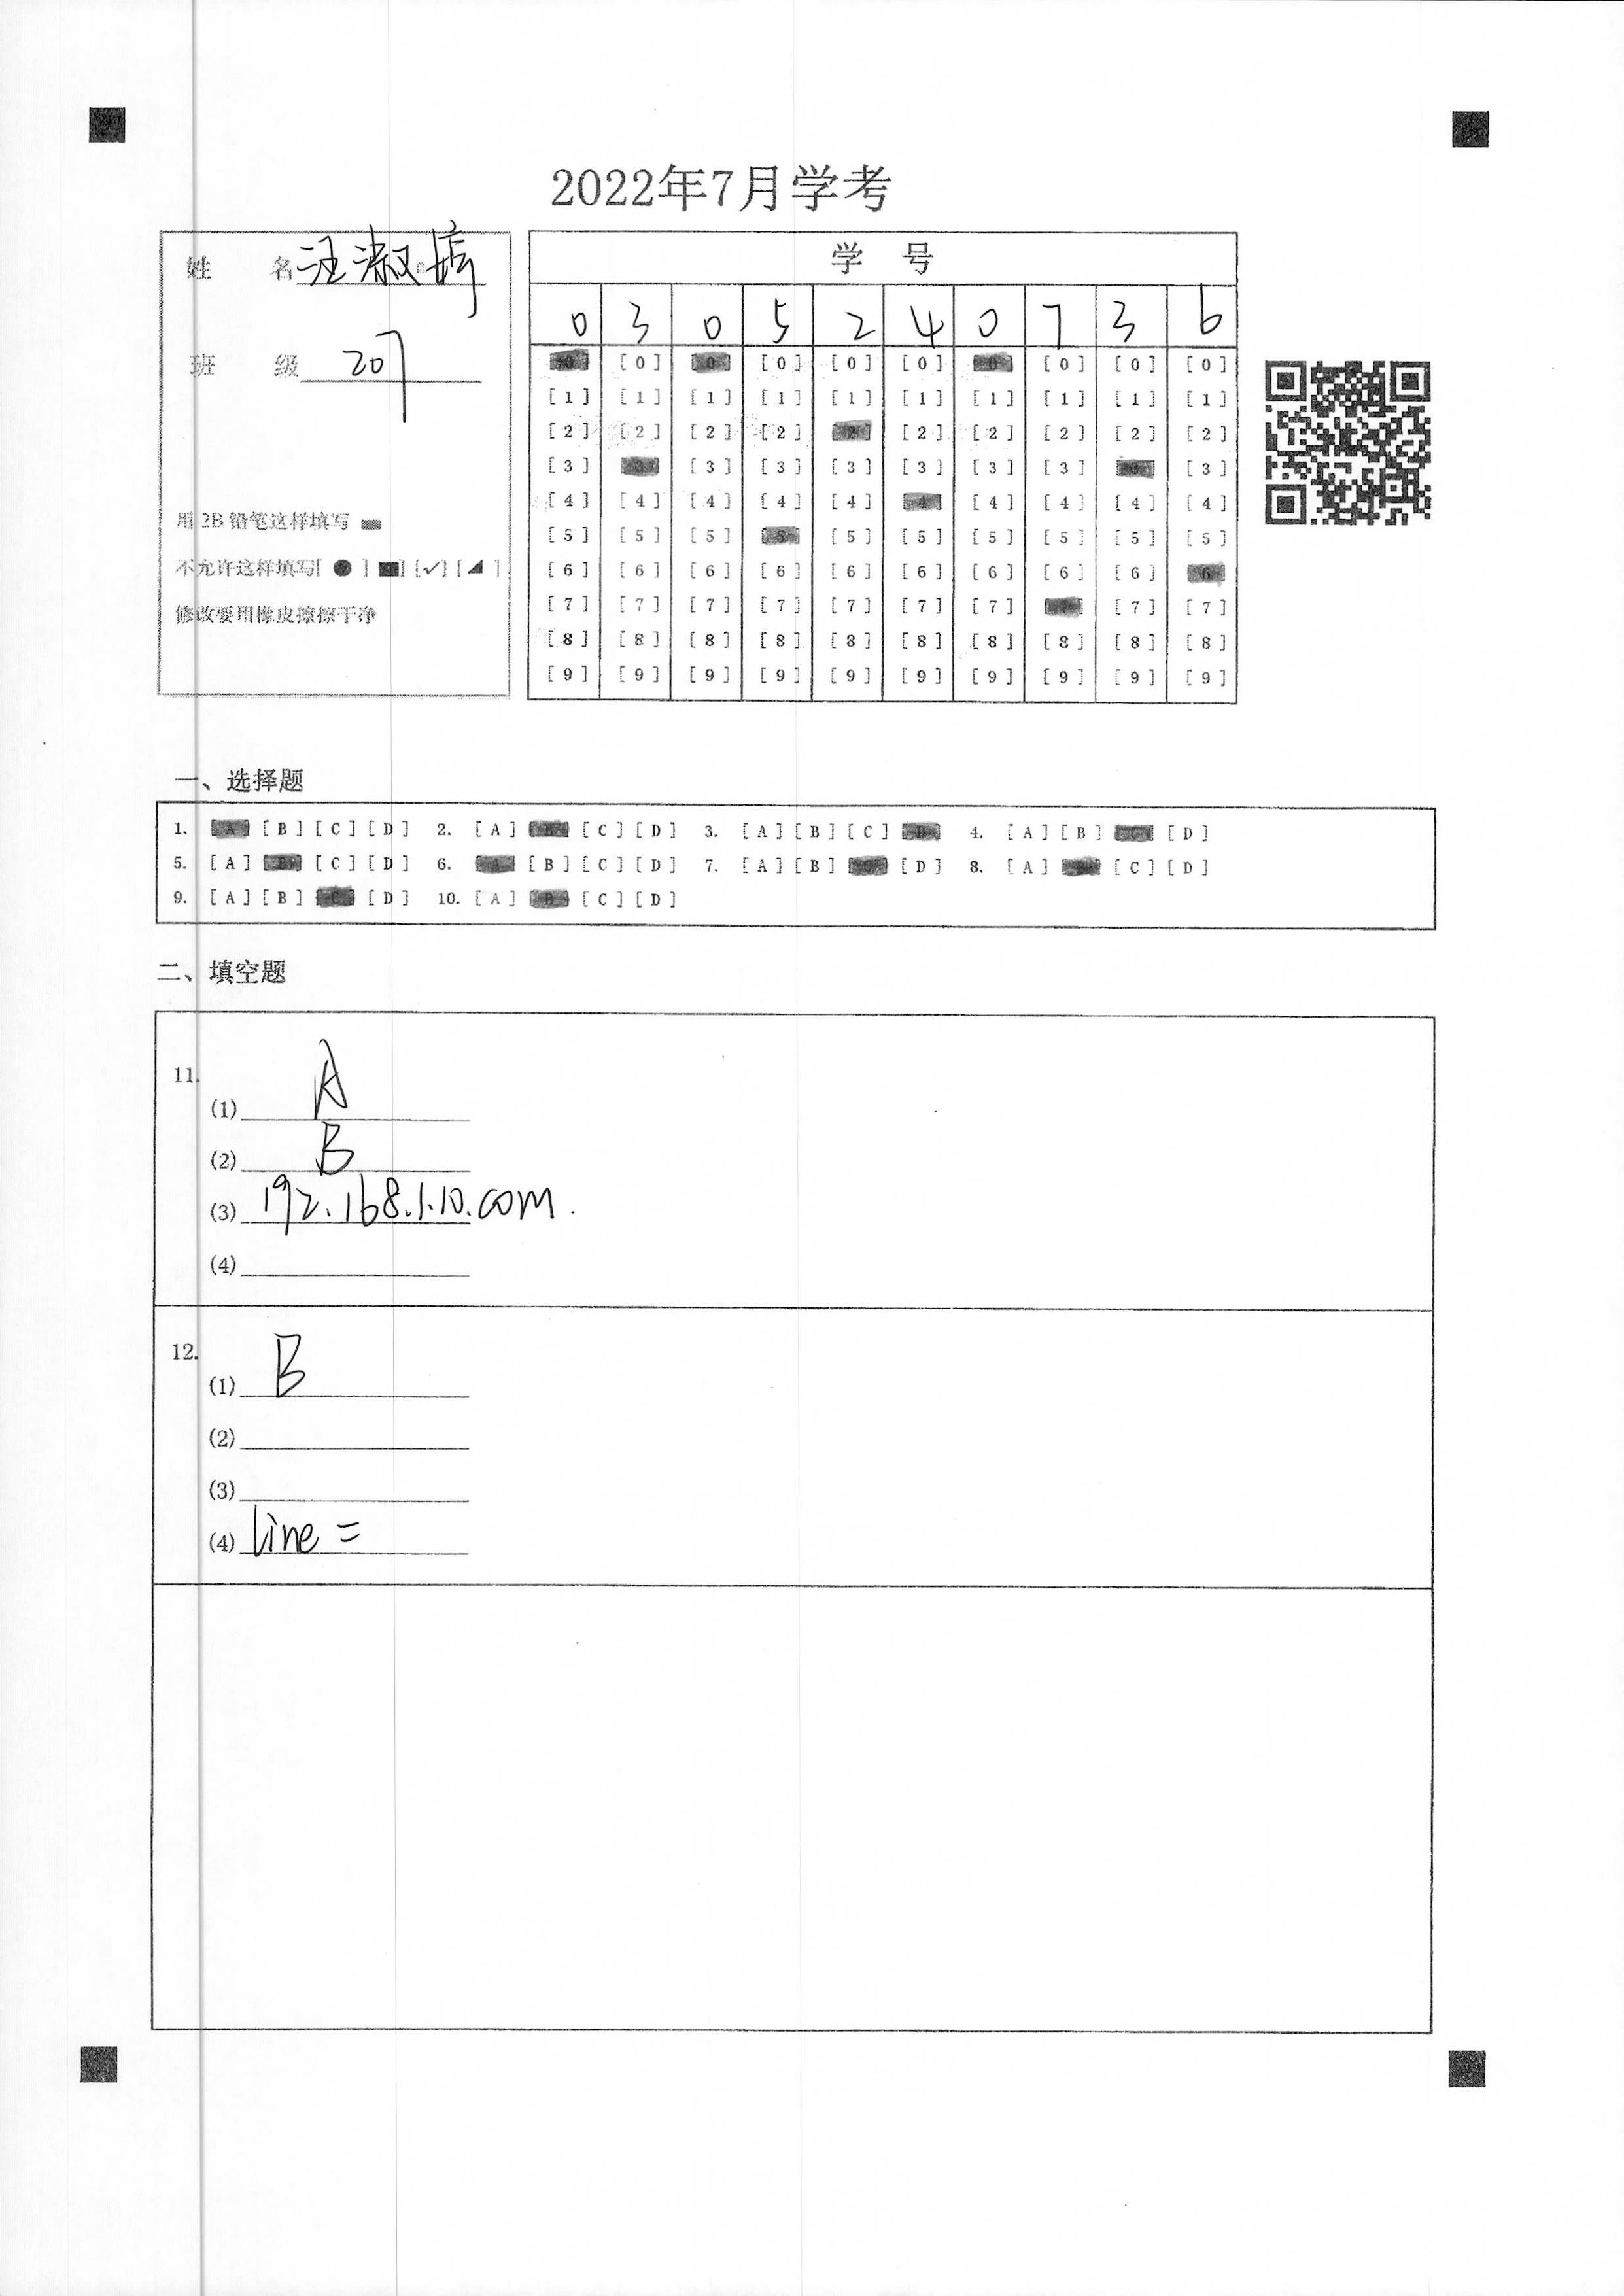 2022年7月学考
姓 名 汪淑
班 级 207
用2B铅笔这样填写
不允许这样填写[ ● ] [■] [✓] [◢ ]
修改要用橡皮擦擦干净
学 号
0 3 0 5 2 4 0 7 3 6
[0] [0] [0] [0] [0] [0] [0] [0] [0] [0]
[1] [1] [1] [1] [1] [1] [1] [1] [1] [1]
[2] [2] [2] [2] [2] [2] [2] [2] [2] [2]
[3] [3] [3] [3] [3] [3] [3] [3] [3] [3]
[4] [4] [4] [4] [4] [4] [4] [4] [4] [4]
[5] [5] [5] [5] [5] [5] [5] [5] [5] [5]
[6] [6] [6] [6] [6] [6] [6] [6] [6] [6]
[7] [7] [7] [7] [7] [7] [7] [7] [7] [7]
[8] [8] [8] [8] [8] [8] [8] [8] [8] [8]
[9] [9] [9] [9] [9] [9] [9] [9] [9] [9]
一、选择题
1. [A] [B] [C] [D] 2. [A] [B] [C] [D] 3. [A] [B] [C] [D] 4. [A] [B] [C] [D]
5. [A] [B] [C] [D] 6. [A] [B] [C] [D] 7. [A] [B] [C] [D] 8. [A] [B] [C] [D]
9. [A] [B] [C] [D] 10. [A] [B] [C] [D]
二、填空题
11.
(1) A
(2) B
(3) 192.168.1.10.com.
(4)
12.
(1) B
(2)
(3)
(4) line =